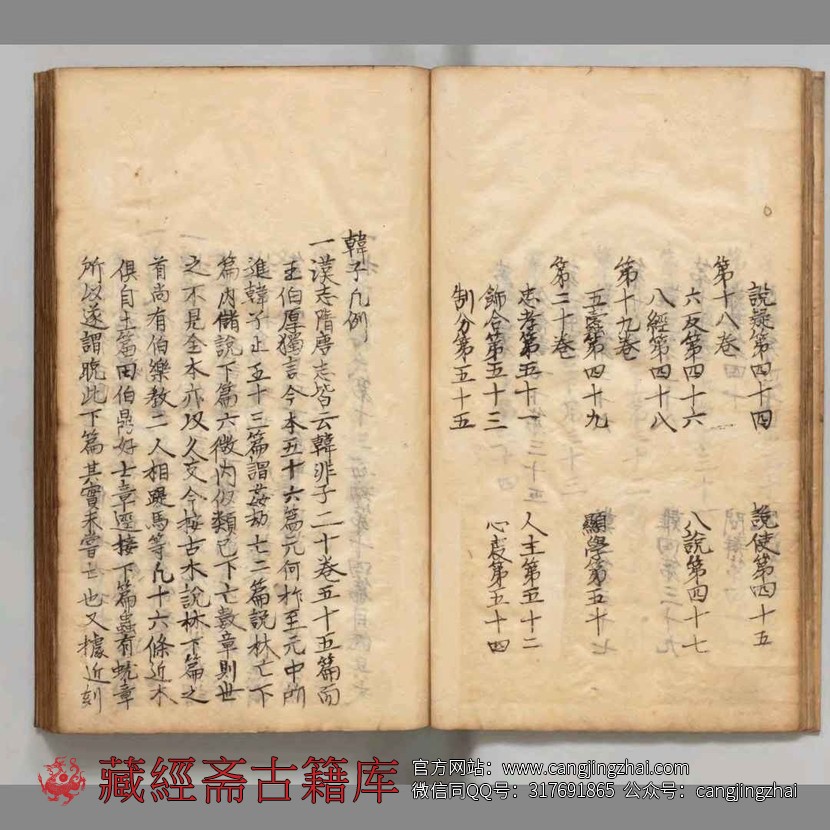 說疑第四十四　詭使第四十五
第十八卷
六反第四十六　八說第四十七
八經第四十八
第十九卷
五蠹第四十九　顯學第五十
第二十卷
忠孝第五十一　人主第五十二
飾令第五十三　心度第五十四
制分第五十五
韓子凡例
一漢志隋唐志皆云韓非子二十卷五十五篇而
王伯厚獨言今本五十六篇元何犿至元中所
進韓子止五十三篇謂姦劫七二篇說林亡下
篇內儲說下篇六微內似類已下亡數章則世
之不見全本亦以久文今按古本說林下篇之
首尚有伯樂教二人相踶馬等凡十六條近本
俱自土篇田伯鼎好士章遝接下篇蟲有蚘章
所以遂謂脫此下篇其實未嘗亡也又據近刻
藏經斋古籍库
官方网站：www.cangjingzhai.com
微信同QQ号：317691865 公众号：cangjingzhai